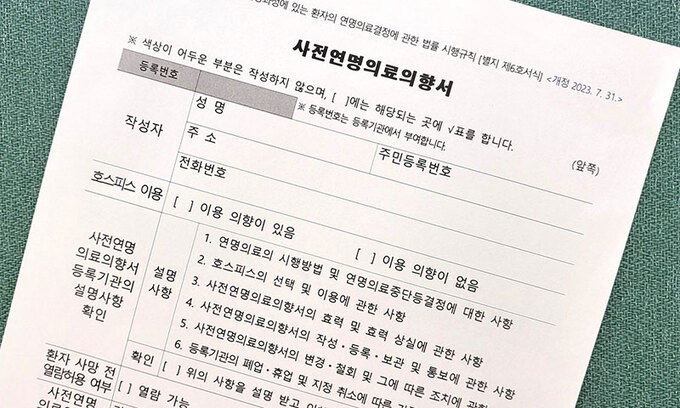 과정에 있는 환자의 연명의료결정에 관한 법률 시행규칙 [별지 제6호서식] <개정 2023. 7. 31.>
사전연명의료의향서
※ 색상이 어두운 부분은 작성하지 않으며, [ ]에는 해당되는 곳에 √표를 합니다.
(앞쪽)
등록번호
※ 등록번호는 등록기관에서 부여합니다.
작성자
성 명
주민등록번호
주 소
전화번호
호스피스 이용
[ ] 이용 의향이 있음
[ ] 이용 의향이 없음
사전연명
의료의향서
등록기관의
설명사항
확인
설명
사항
1. 연명의료의 시행방법 및 연명의료중단등결정에 대한 사항
2. 호스피스의 선택 및 이용에 관한 사항
3. 사전연명의료의향서의 효력 및 효력 상실에 관한 사항
4. 사전연명의료의향서의 작성ㆍ등록ㆍ보관 및 통보에 관한 사항
5. 사전연명의료의향서의 변경ㆍ철회 및 그에 따른 조치에 관한
6. 등록기관의 폐업ㆍ휴업 및 지정 취소에 따른
확인
[ ] 위의 사항을 설명 받고
환자 사망 전
열람허용 여부
[ ] 열람 가능
사전연명